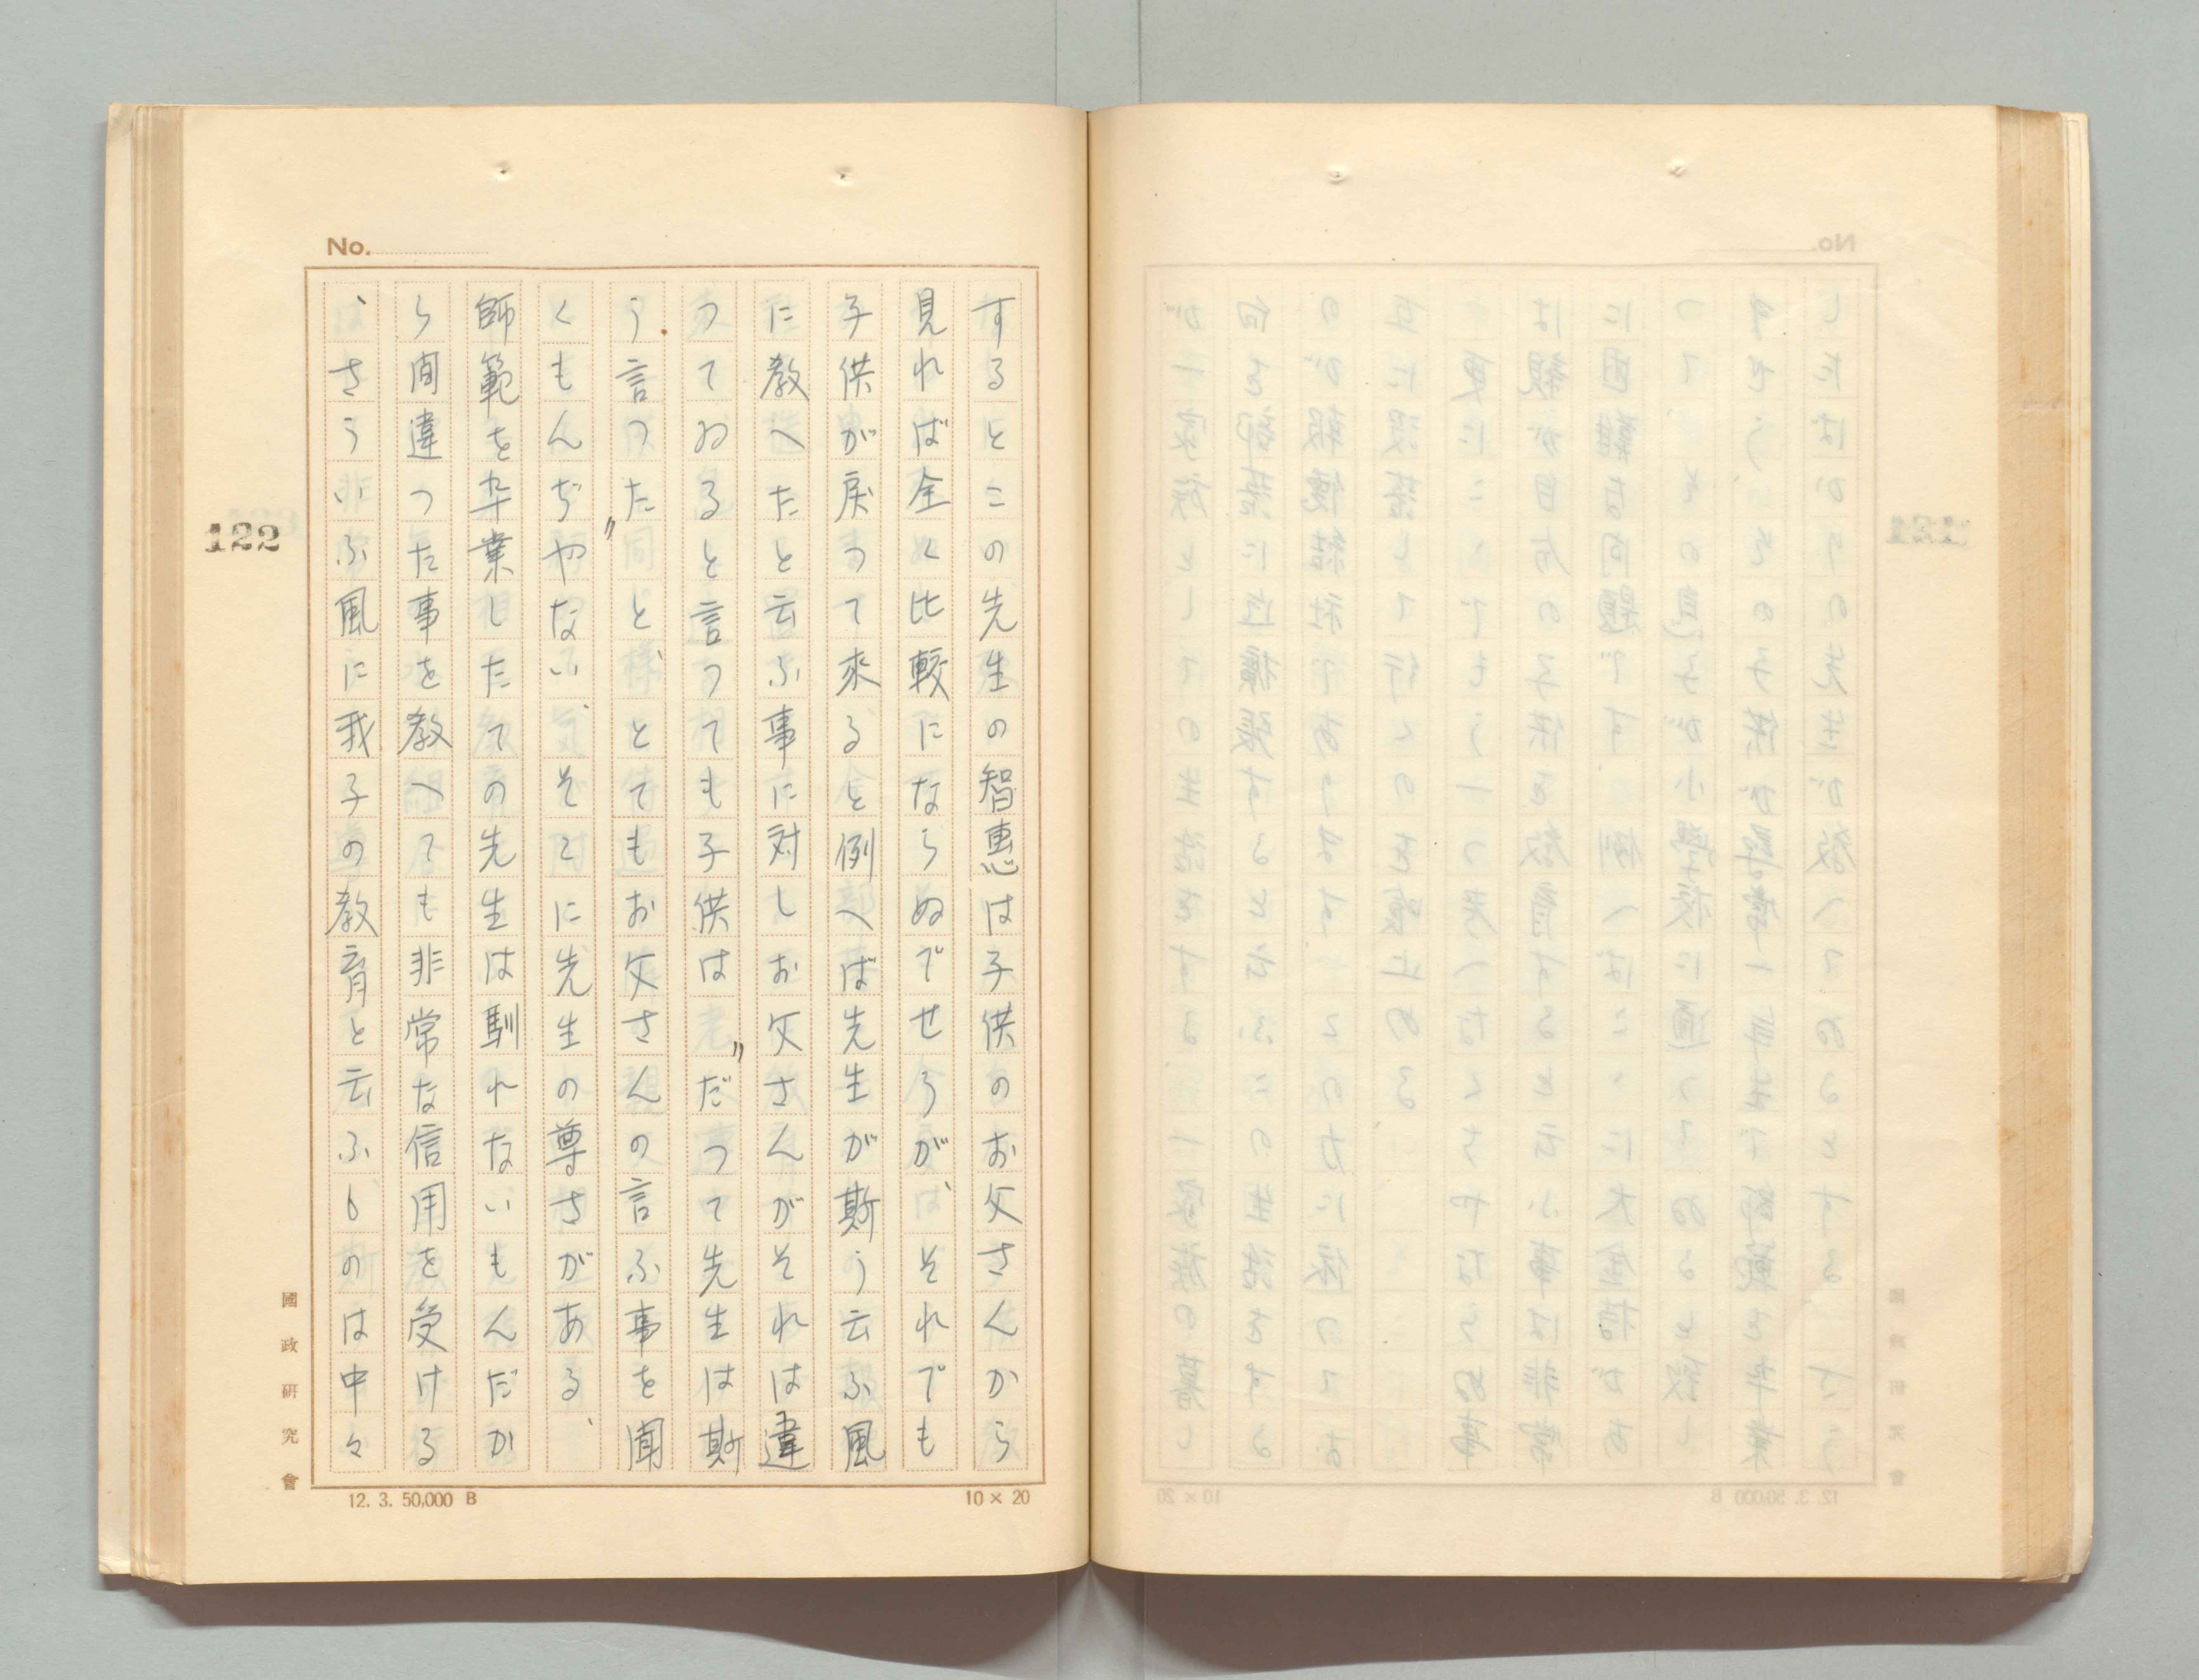 No.
するとこの先生の智恵は子供のお父さんから
見れば全く比較にならぬでせうが、それでも
子供が戻つて来ると例へば先生が斯う云ふ風
に教へたと云ふ事に対しお父さんがそれは違
つてゐると言つても子供は〃だつて先生は斯
う言つた〃と、とてもお父さんの言ふ事を聞
くもんぢやない、そこに先生の尊さがある、
師範を卒業したての先生は馴れないもんだか
ら間違つた事を教へても非常な信用を受ける
、さういふ風に我子の教育と云ふものは中々
122
國政研究會
12. 3. 50,000 B
10 × 20